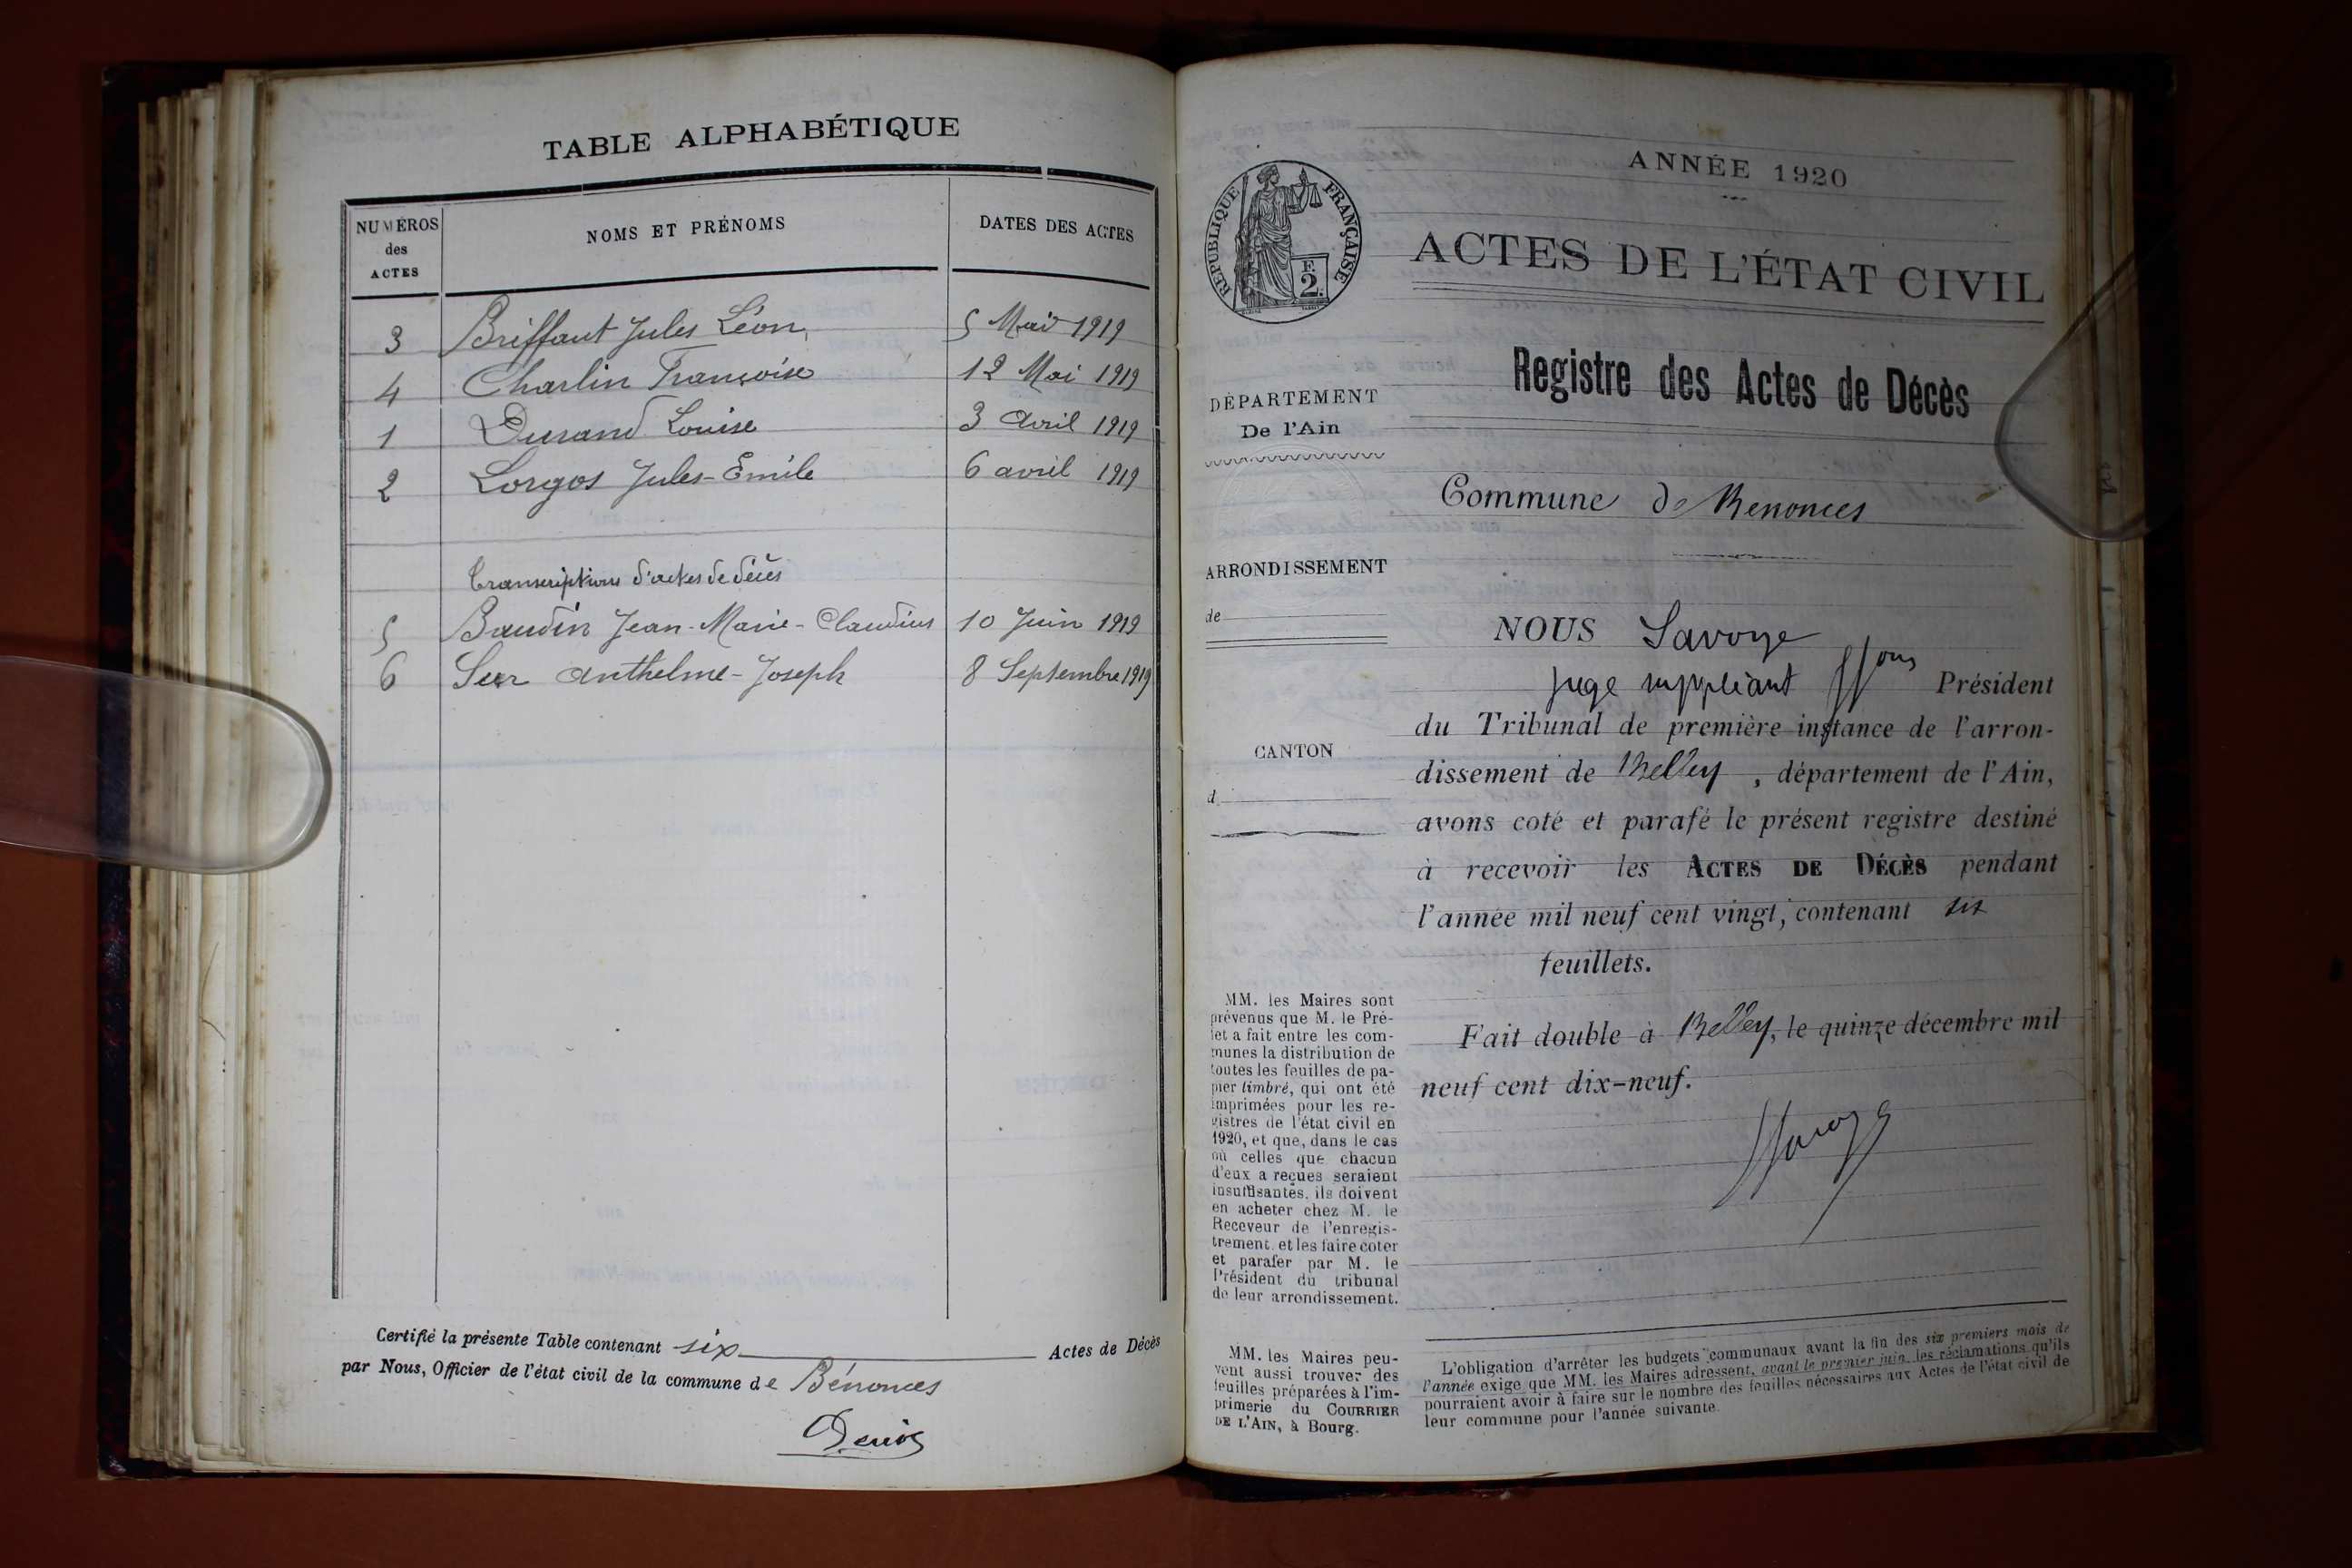 TABLE ALPHABÉTIQUE
NUMÉROS des ACTES
NOMS ET PRÉNOMS
DATES DES ACTES
3 Briffaut Jules Léon 5 Mai 1919
4 Charlin Françoise 12 Mai 1919
1 Durand Louise 3 Avril 1919
2 Lorgos Jules-Emile 6 avril 1919
Transcriptions d'actes de décès
5 Baudin Jean-Marie-Claudius 10 Juin 1919
6 Sur Anthelme-Joseph 8 Septembre 1919
Certifié la présente Table contenant six Actes de Décès
par Nous, Officier de l'état civil de la commune de Bénonces
RÉPUBLIQUE FRANÇAISE
F. 2.
ANNÉE 1920
ACTES DE L'ÉTAT CIVIL
Registre des Actes de Décès
DÉPARTEMENT
De l'Ain
Commune de Benonces
ARRONDISSEMENT
de
CANTON
d
NOUS Savoye
juge suppléant Président
du Tribunal de première instance de l'arron-
dissement de Belley, département de l'Ain,
avons coté et parafé le présent registre destiné
à recevoir les ACTES DE DÉCÈS pendant
l'année mil neuf cent vingt, contenant six
feuillets.
Fait double à Belley, le quinze décembre mil
neuf cent dix-neuf.
MM. les Maires sont
prévenus que M. le Pré-
fet a fait entre les com-
munes la distribution de
toutes les feuilles de pa-
pier timbré, qui ont été
imprimées pour les re-
gistres de l'état civil en
1920, et que, dans le cas
où celles que chacun
d'eux a reçues seraient
insuffisantes, ils doivent
en acheter chez M. le
Receveur de l'enregis-
trement, et les faire coter
et parafer par M. le
Président du tribunal
de leur arrondissement.
MM. les Maires peu-
vent aussi trouver des
feuilles préparées à l'im-
primerie du COURRIER
DE L'AIN, à Bourg.
L'obligation d'arrêter les budgets communaux avant la fin des six premiers mois de
l'année exige que MM. les Maires adressent, avant le premier juin, les réclamations qu'ils
pourraient avoir à faire sur le nombre des feuilles nécessaires aux Actes de l'état civil de
leur commune pour l'année suivante.